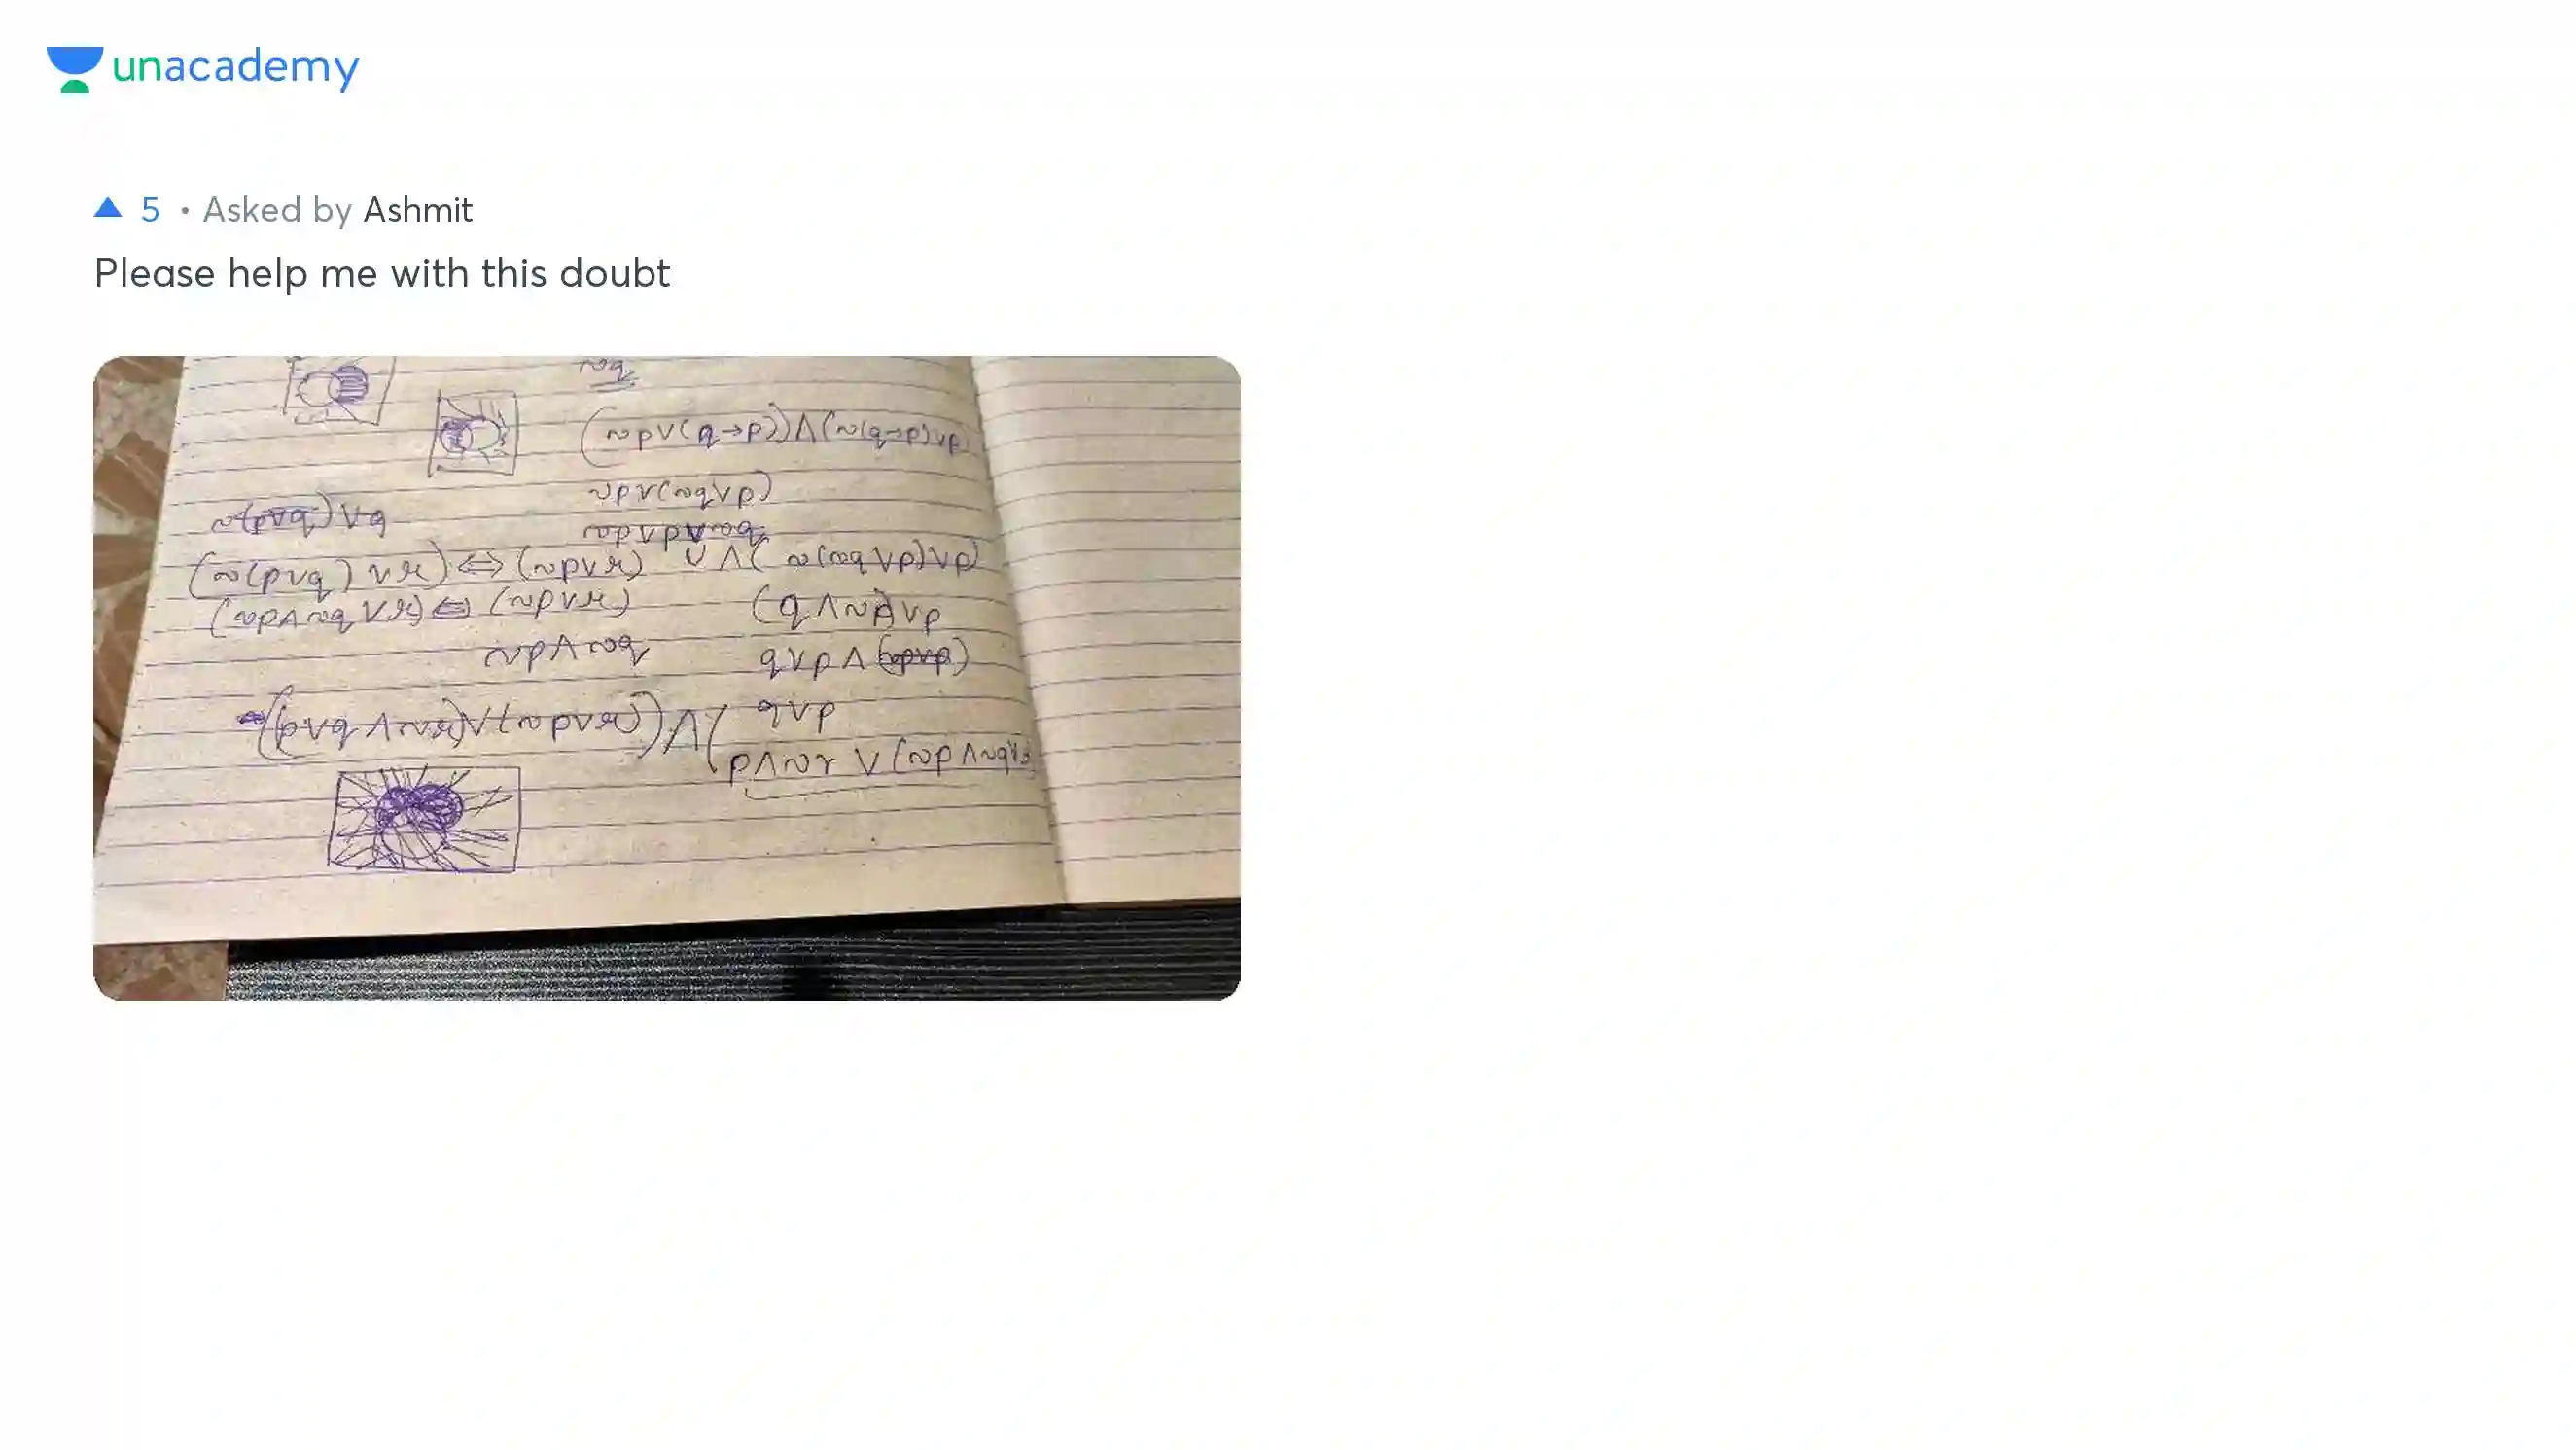 unacademy
5 • Asked by Ashmit
Please help me with this doubt
~q
(~p∨(q→p))∧(~(q→p)∨p)
~p∨(~q∨p)
~(p∨q)∨q
~p∨p∨~q
(~(p∨q)∨r)⇔(~p∨r) ∪∧(~(~q∨p)∨p)
(~p∧~q∨r)⇔(~p∨r) (q∧~p)∨p
~p∧~q q∨p∧(~p∨p)
((p∨q∧~r)∨(~p∨r))∧( q∨p
p∧~r∨(~p∧~q∨